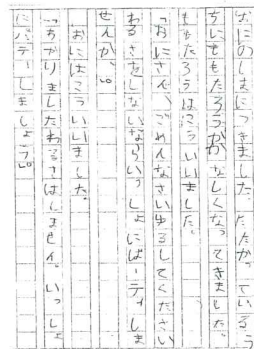 おにのしまにつきました。たたかっているう
ちにももたろうがかなしくなってきました。
ももたろうはこういいました。
「おにさん、ごめんなさいゆるしてください
わるさをしないならいっしょにぱーティしま
せんか。」
おにはこういいました。
「わかりましたわるさはしません。いっしょ
にパテーしましょう。」